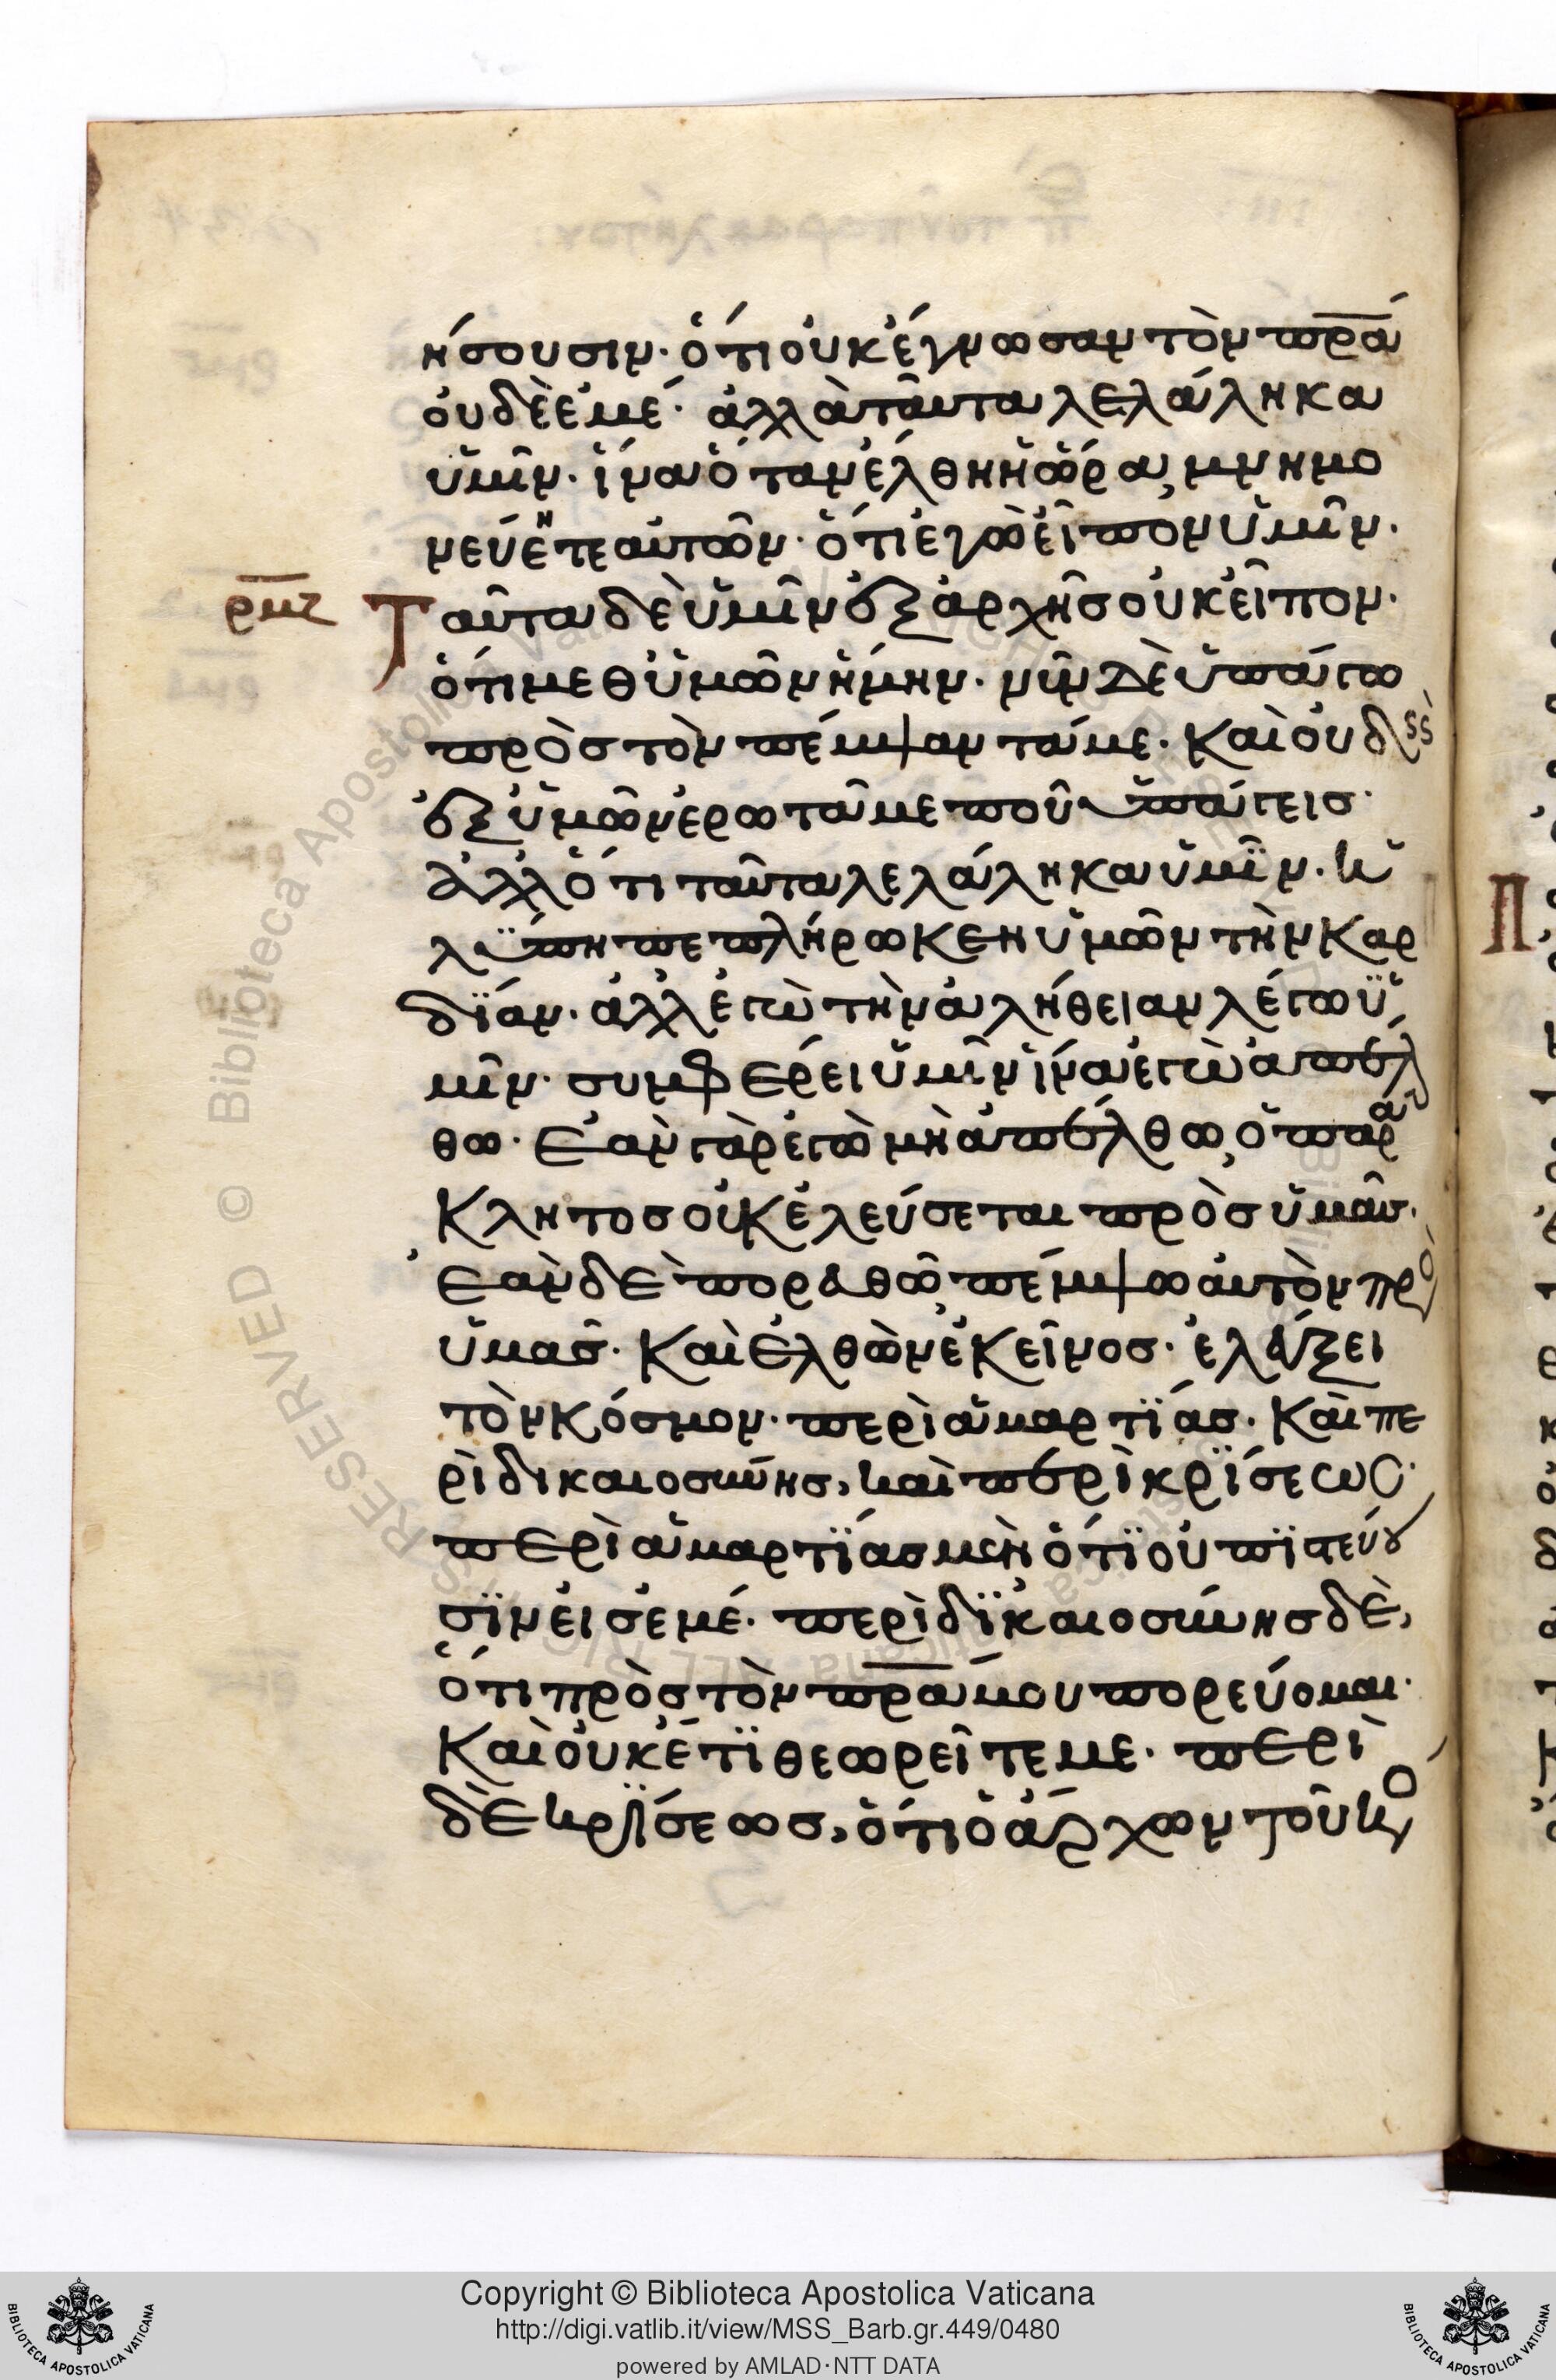 ήσουσιν· ὅτι οὐκ ἔγνωσαν τὸν πρ̅α̅
οὐδὲ ἐμέ· ἀλλὰ ταῦτα λελάληκα
ὑμῖν· ἵνα ὅταν ἔλθη ἡ ὥρα, μνημο
νεύητε αὐτῶν· ὅτι ἐγὼ εἶπον ὑμῖν·
ρμζ Ταῦτα δὲ ὑμῖν ἐξ ἀρχῆσ οὐκ εἶπον·
ὅτι μεθ ὑμῶν ἤμην· νῦν δὲ ὑπάγω
πρὸσ τὸν πέμψαντά με· καὶ οὐδεὶς
ἐξ ὑμῶν ἐρωτᾶ με ποῦ ὑπάγεισ·
ἀλλ ὅτι ταῦτα λελάληκα ὑμῖν· ἡ
λύπη πεπλήρωκεν ὑμῶν τὴν καρ
δϊαν· ἀλλ ἐγὼ τὴν ἀλήθειαν λέγω ὑ
μῖν· συμφέρει ὑμῖν ἵνα ἐγὼ ἀπέλ
θω· ἐὰν γὰρ ἐγὼ μὴ ἀπέλθω, ὁ παρά
κλητοσ οὐκ ἐλεύσεται πρὸσ ὑμᾶσ·
ἐὰν δὲ πορευθῶ, πέμψω αὐτὸν πρὸ
ὑμᾶσ· καὶ ἐλθὼν ἐκεῖνοσ· ἐλέγξει
τὸν κόσμον· περὶ ἁμαρτϊασ· καὶ πε
ρὶ δικαιοσύνησ, καὶ περὶ κρϊσεως·
περὶ ἁμαρτϊασ μὲν ὅτϊ οὐ πϊστεύου
σϊν εἰσ ἐμέ· περὶ δϊκαιοσύνησ δὲ,
ὅτι πρὸσ τὸν πρ̅α̅ μου πορεύομαι·
καὶ οὐκέτϊ θεωρεῖτε με· περὶ
δὲ κρϊσεωσ, ὅτι ὁ ἄρχων τοῦ κό
Copyright © Biblioteca Apostolica Vaticana
http://digi.vatlib.it/view/MSS_Barb.gr.449/0480
powered by AMLAD·NTT DATA
BIBLIOTECA APOSTOLICA VATICANA
BIBLIOTECA APOSTOLICA VATICANA